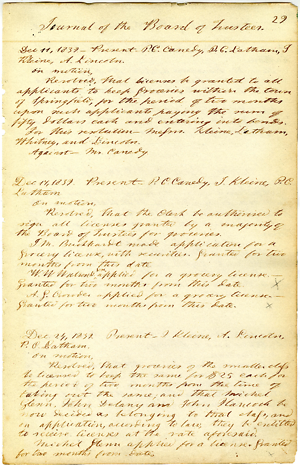 29
Journal of the Board of Trustees
Dec 11, 1839 — Present P. C. Canedy, P. C. Latham, J
Kleine, A. Lincoln.
on motion,
Resolved, that licenses be granted to all
applicants to keep groceries within the town
of Springfield, for the period of two months
upon such applicants paying the sum of
fifty dollars each and entering into bonds.
For this resolution Messrs Kleine, Latham,
Whitney, and Lincoln.
Against — Mr Canedy
Dec 17, 1839. Present P. C Canedy, J. Kleine, P. C.
Latham.
On motion,
Resolved, that the Clerk be authorised to
sign all licenses granted by a majority of
the Board of Trustees for groceries.
J M. Burkhardt made application for a
grocery license, with securities. Granted for two
months from this date
W. W. applies for a grocery license —
Granted for two months from this date. X
A. J. applies for a grocery license —
Granted for two months from this date. X
Dec 24, 1839. Present J Kleine, A. Lincoln,
P. C. Latham.
On motion,
Resolved, that groceries of the smaller class
be licensed to keep the same for $25 each, for
the period of two months from the time of
taking out the same, and that Michael
Glenn, John Delany and John Hancock be
now received as belonging to that class, and
on application, according to law, they be entitled
to receive licenses at the rate aforesaid.
Michael Glenn applies for a license. Granted
for two months from date.